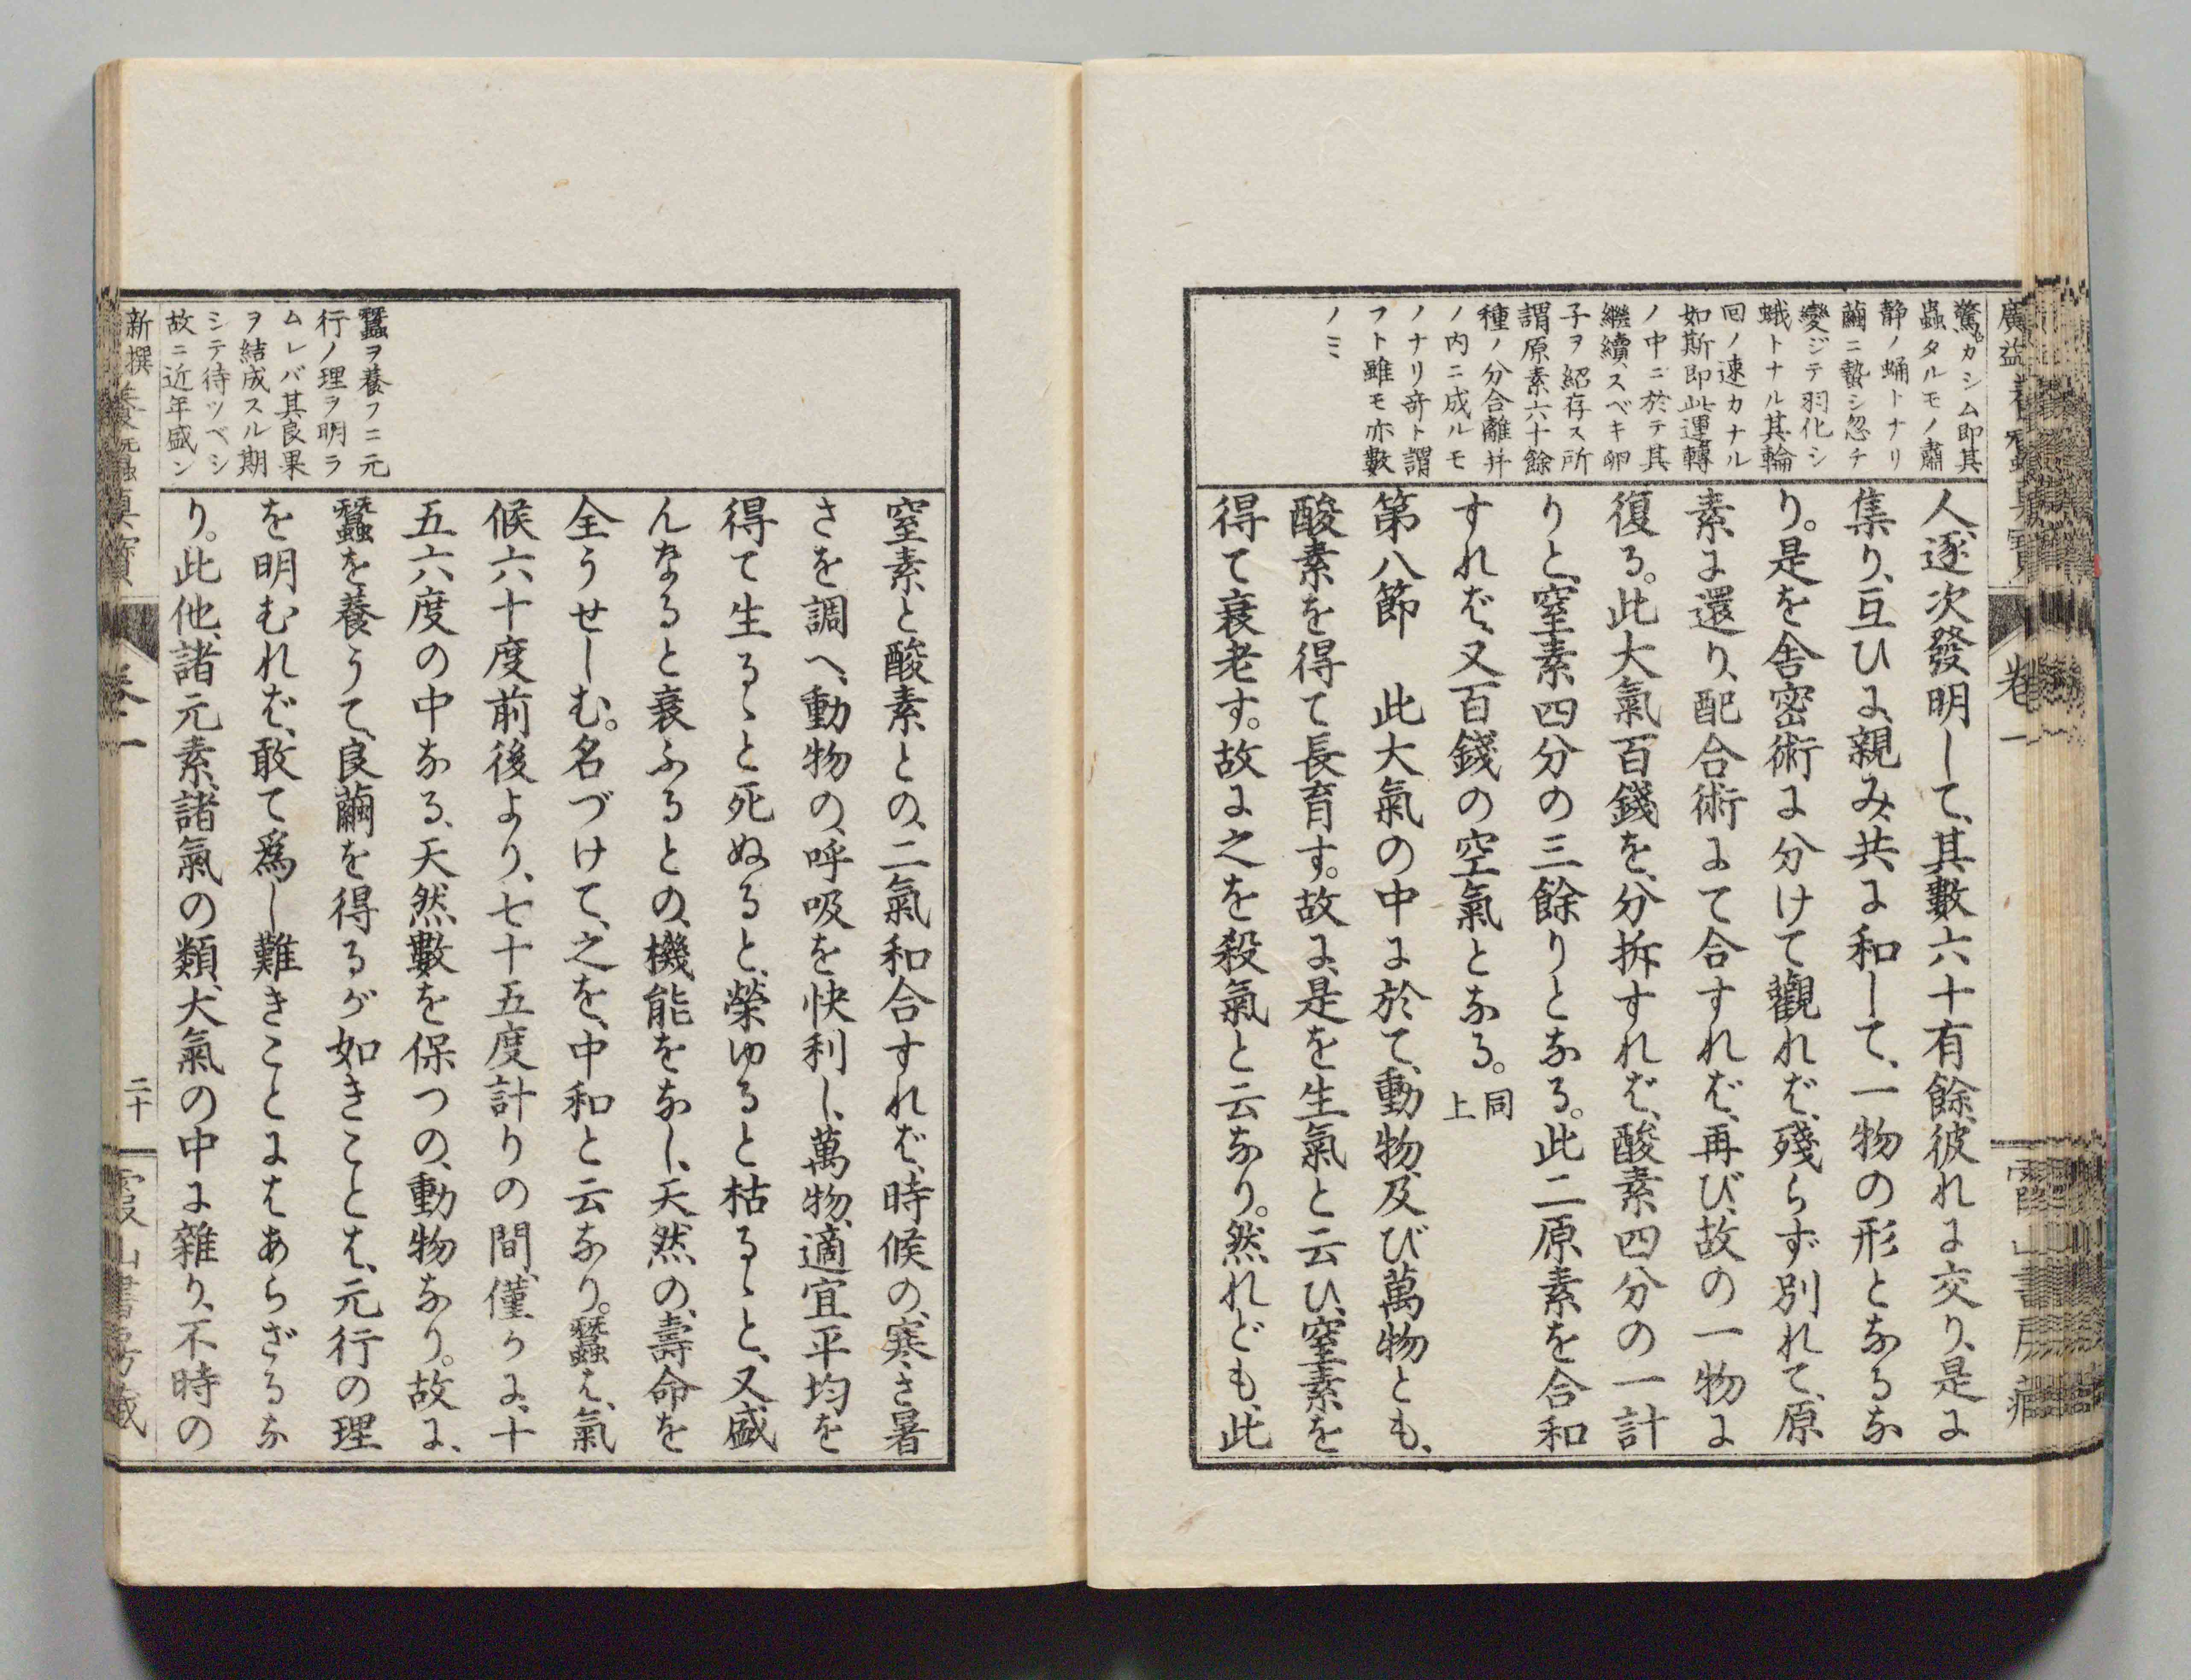 驚カシム即其
蟲タルモノ肅
静ノ蛹トナリ
繭ニ蟄シ忽チ
變ジテ羽化シ
蛾トナル其輪
回ノ速カナル
如斯即此運轉
ノ中ニ於テ其
繼續スベキ卵
子ヲ紹存ス所
謂原素六十餘
種ノ分合離幷
ノ内ニ成ルモ
ノナリ奇ト謂
フト雖モ亦數
ノミ
人、逐次發明して、其數六十有餘、彼れに交り、是に
集り、互ひに親み、共に和して、一物の形となるな
り。是を舎密術に分けて觀れば、殘らず別れて、原
素に還り、配合術にて合すれば、再び、故の一物に
復る。此大氣百錢を、分拆すれば、酸素四分の一計
りと、窒素四分の三餘りとなる。此二原素を合和
すれば、又百錢の空氣となる。同上
第八節　此大氣の中に於て、動物、及び萬物とも、
酸素を得て長育す。故に、是を生氣と云ひ、窒素を
得て衰老す。故に之を殺氣と云なり。然れども、此
卷一
窒素と酸素との、二氣和合すれば、時候の、寒さ暑
さを調へ、動物の、呼吸を快利し、萬物、適宜平均を
得て生るゝと死ぬると、榮ゆると枯るゝと、又盛
んなると衰ふるとの、機能をなし、天然の、壽命を
全うせしむ。名づけて、之を、中和と云なり。蠶は、氣
候六十度前後より、七十五度計りの間、僅かに、十
五六度の中なる、天然數を保つの、動物なり。故に、
蠶を養うて、良繭を得るが如きことは、元行の理
を明むれば、敢て爲し難きことにはあらざるな
り。此他、諸元素、諸氣の類、大氣の中に雜り、不時の
蠶ヲ養フニ元
行ノ理ヲ明ラ
ムレバ其良果
ヲ結成スル期
シテ待ツベシ
故ニ近年盛ン
新撰
卷一
二十